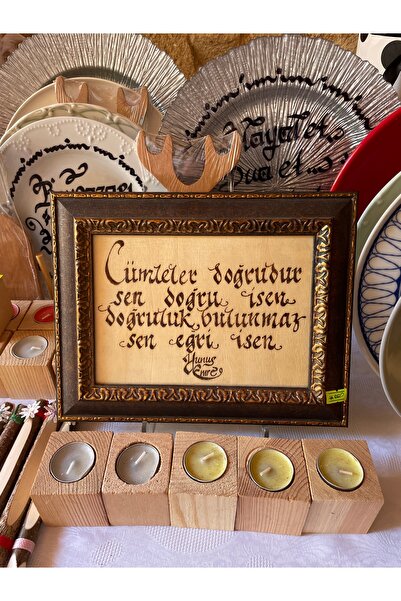 Hayat
Cümleler doğrudur
sen doğru isen
doğruluk bulunmaz
sen eğri isen
Yunus
Emre